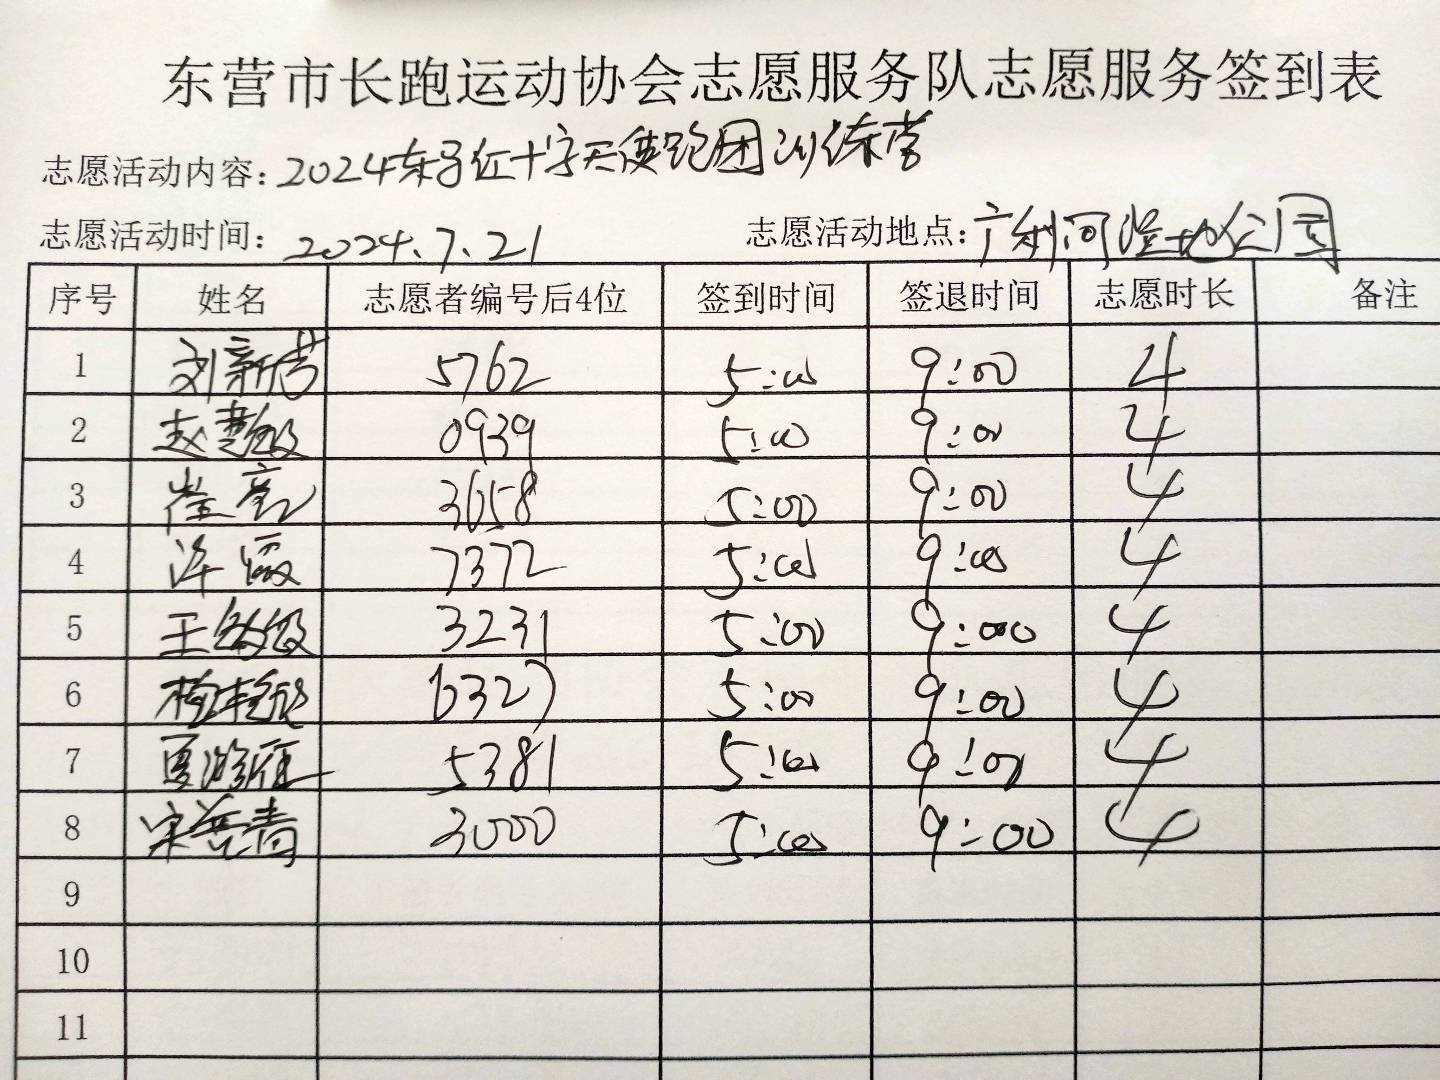 东营市长跑运动协会志愿服务队志愿服务签到表
志愿活动内容：2024东马红十字天使跑团训练营
志愿活动时间：2024.7.21 志愿活动地点：广利河湿地公园
序号 姓名 志愿者编号后4位 签到时间 签退时间 志愿时长 备注
1 刘新芳 5762 5:00 9:00 4
2 赵 0939 5:00 9:00 4
3 崔亮 3658 5:00 9:00 4
4 许霞 7372 5:00 9:00 4
5 王 3231 5:00 9:00 4
6 6327 5:00 9:00 4
7 夏 5381 5:00 9:00 4
8 宋 青 3000 5:00 9:00 4
9
10
11